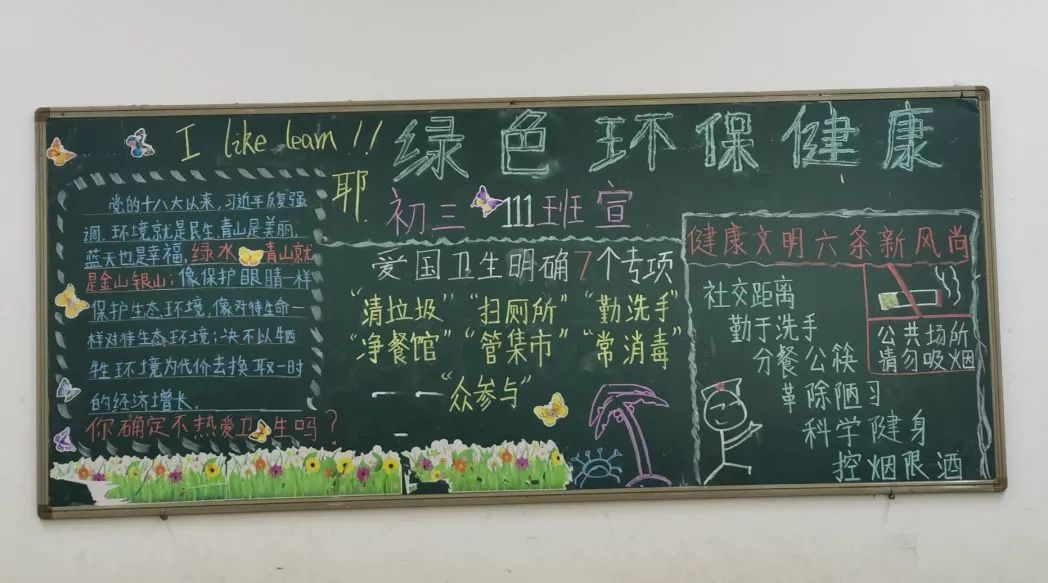 I like learn!!
耶
绿色环保健康
初三111班宣
党的十八大以来,习近平反复强
调,环境就是民生,青山是美丽,
蓝天也是幸福,绿水青山就
是金山银山;像保护眼睛一样
保护生态环境,像对待生命一
样对待生态环境;决不以牺
牲环境为代价去换取一时
的经济增长。
你确定不热爱卫生吗?
爱国卫生明确7个专项
“清垃圾”“扫厕所”“勤洗手”
“净餐馆”“管集市”“常消毒”
——“众参与”
健康文明六条新风尚
社交距离
勤于洗手
分餐公筷
革除陋习
科学健身
控烟限酒
公共场所
请勿吸烟